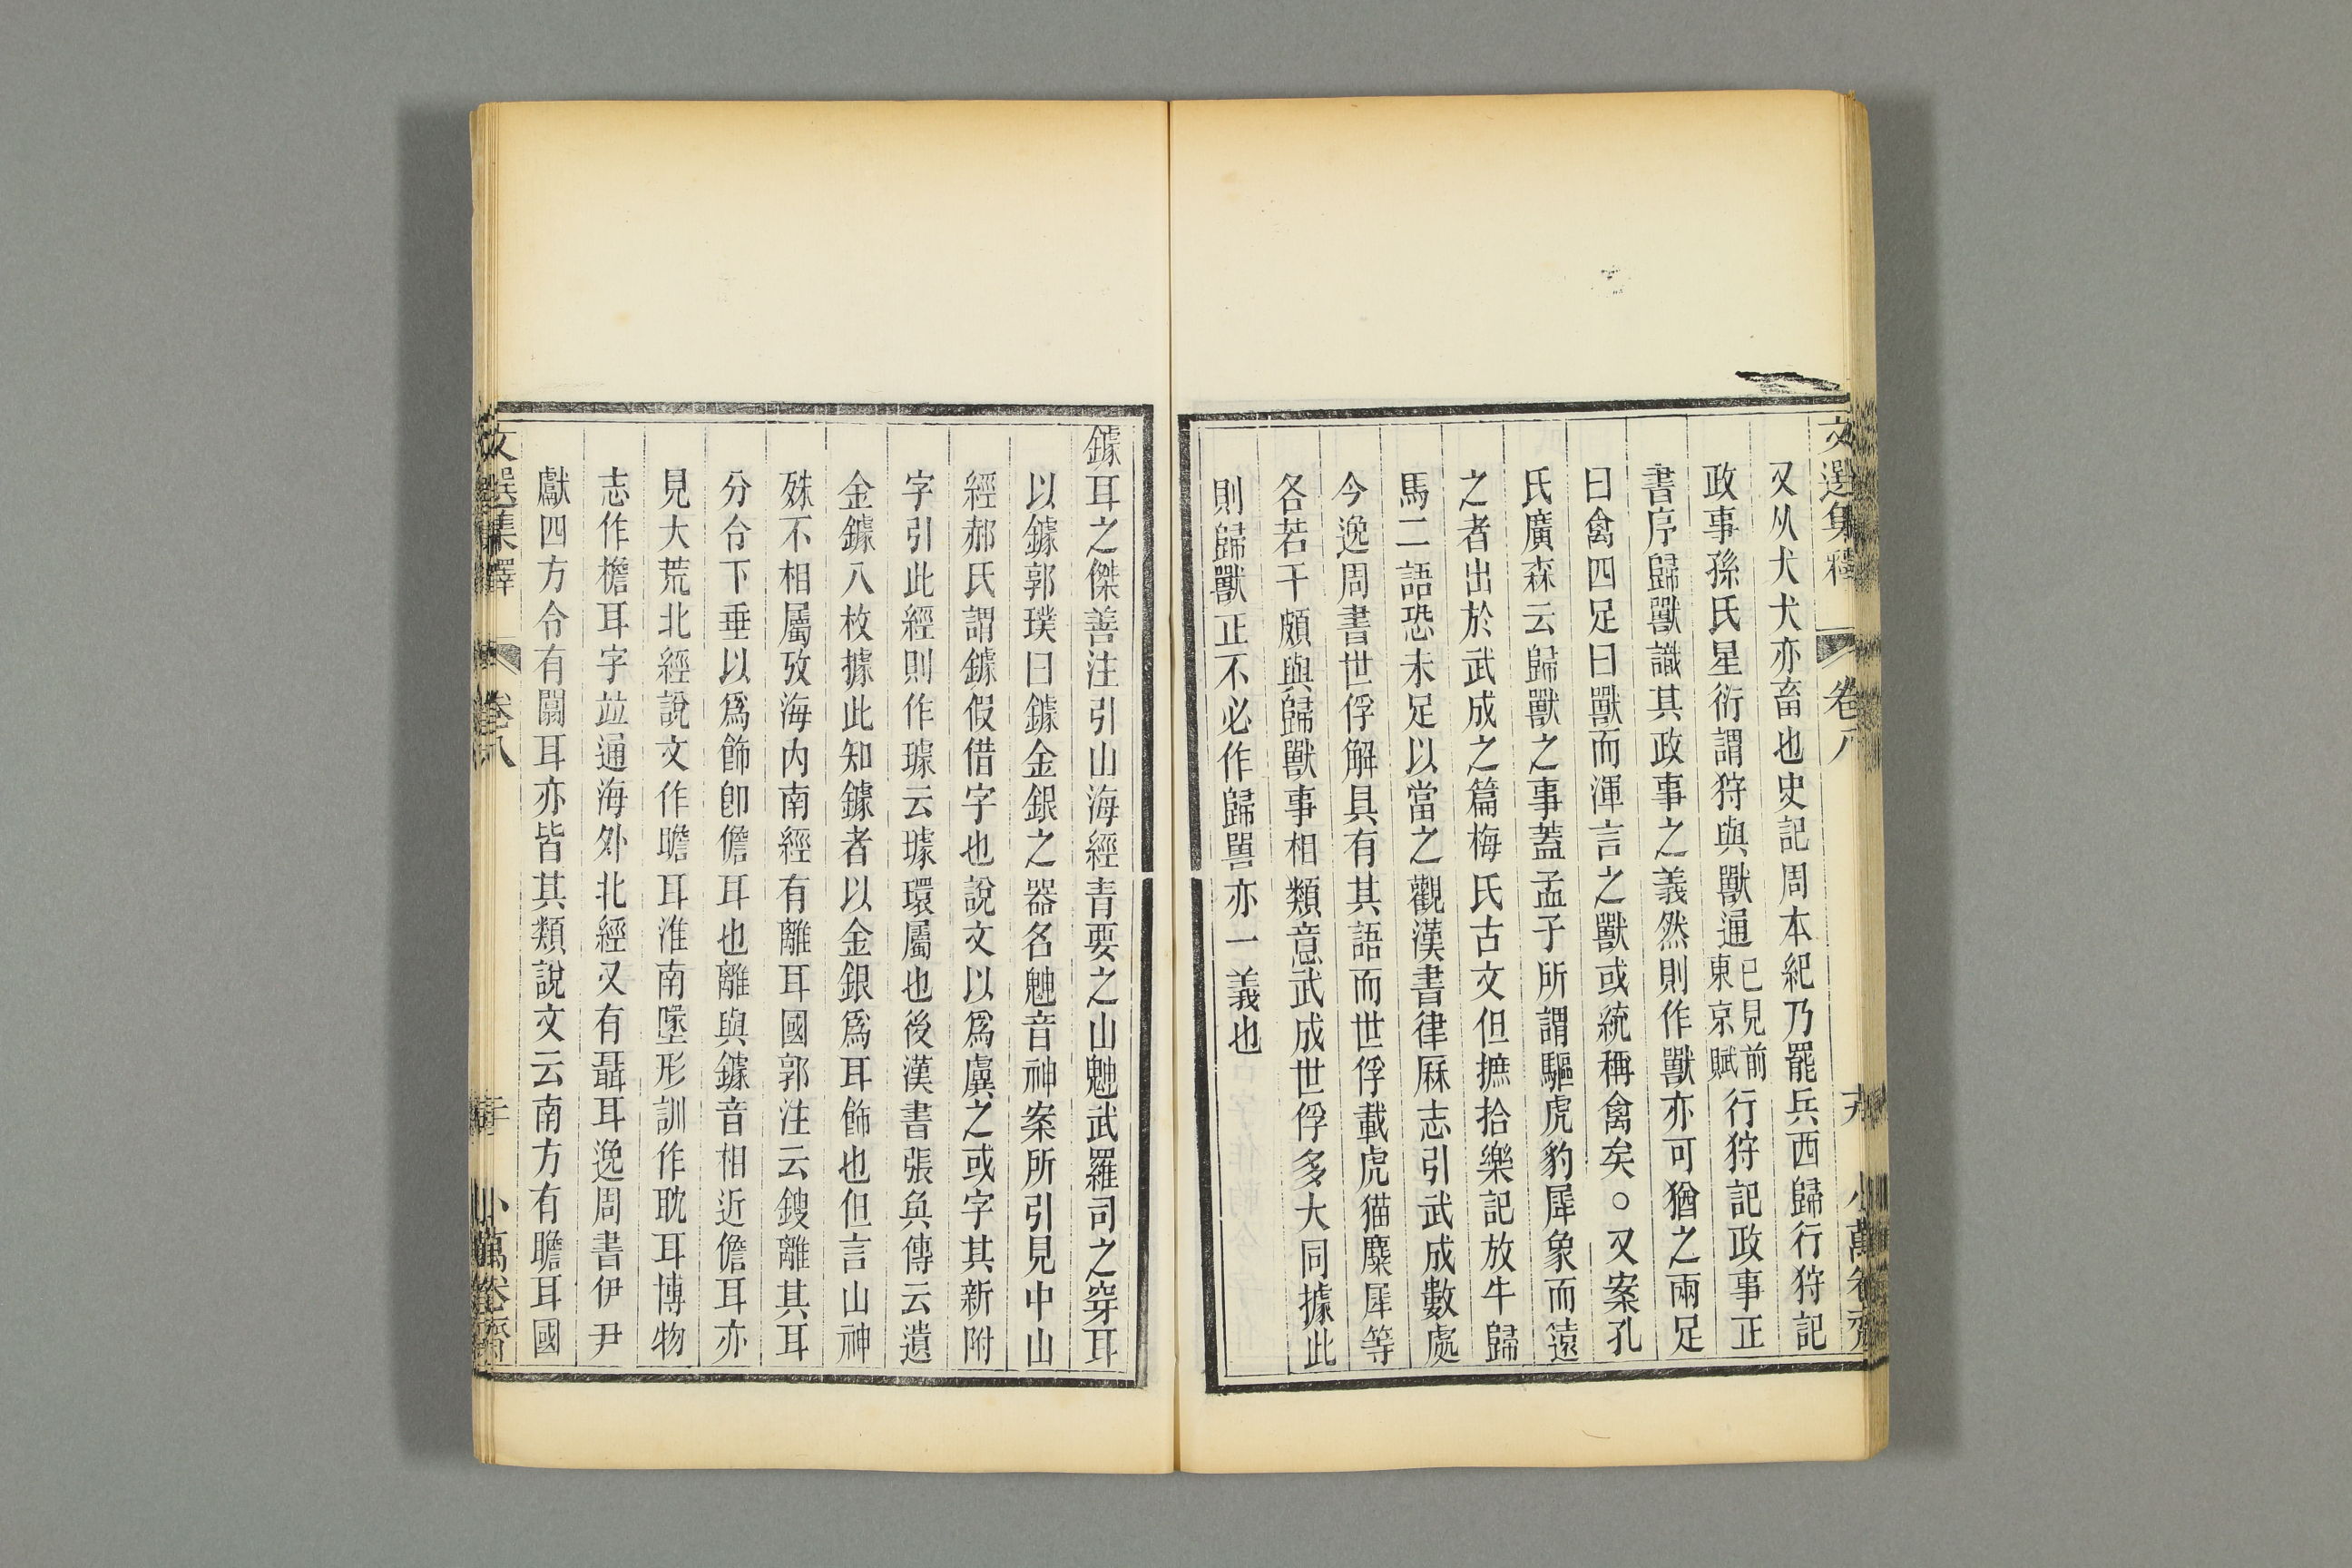 文選集釋 卷八 十九 小萬卷齋
又从犬犬亦畜也史記周本紀乃罷兵西歸行狩記
政事孫氏星衍謂狩與獸通已見前東京賦行狩記政事正
書序歸獸識其政事之義然則作獸亦可猶之兩足
曰禽四足曰獸而渾言之獸或統稱禽矣○又案孔
氏廣森云歸獸之事蓋孟子所謂驅虎豹犀象而遠
之者出於武成之篇梅氏古文但摭拾樂記放牛歸
馬二語恐未足以當之觀漢書律厤志引武成數處
今逸周書世俘解具有其語而世俘載虎猫麋犀等
各若干頗與歸獸事相類意武成世俘多大同據此
則歸獸正不必作歸嘼亦一義也
鐻耳之傑善注引山海經青要之山䰠武羅司之穿耳
以鐻郭璞曰鐻金銀之器名䰠音神案所引見中山
經郝氏謂鐻假借字也說文以爲虡之或字其新附
字引此經則作璩云璩環屬也後漢書張奐傳云遺
金鐻八枚據此知鐻者以金銀爲耳飾也但言山神
殊不相屬攷海內南經有離耳國郭注云鎪離其耳
分令下垂以爲飾卽儋耳也離與鐻音相近儋耳亦
見大荒北經說文作瞻耳淮南墬形訓作耽耳博物
志作檐耳字竝通海外北經又有聶耳逸周書伊尹
獻四方令有闟耳亦皆其類說文云南方有瞻耳國
文選集釋 卷八 二十 小萬卷齋